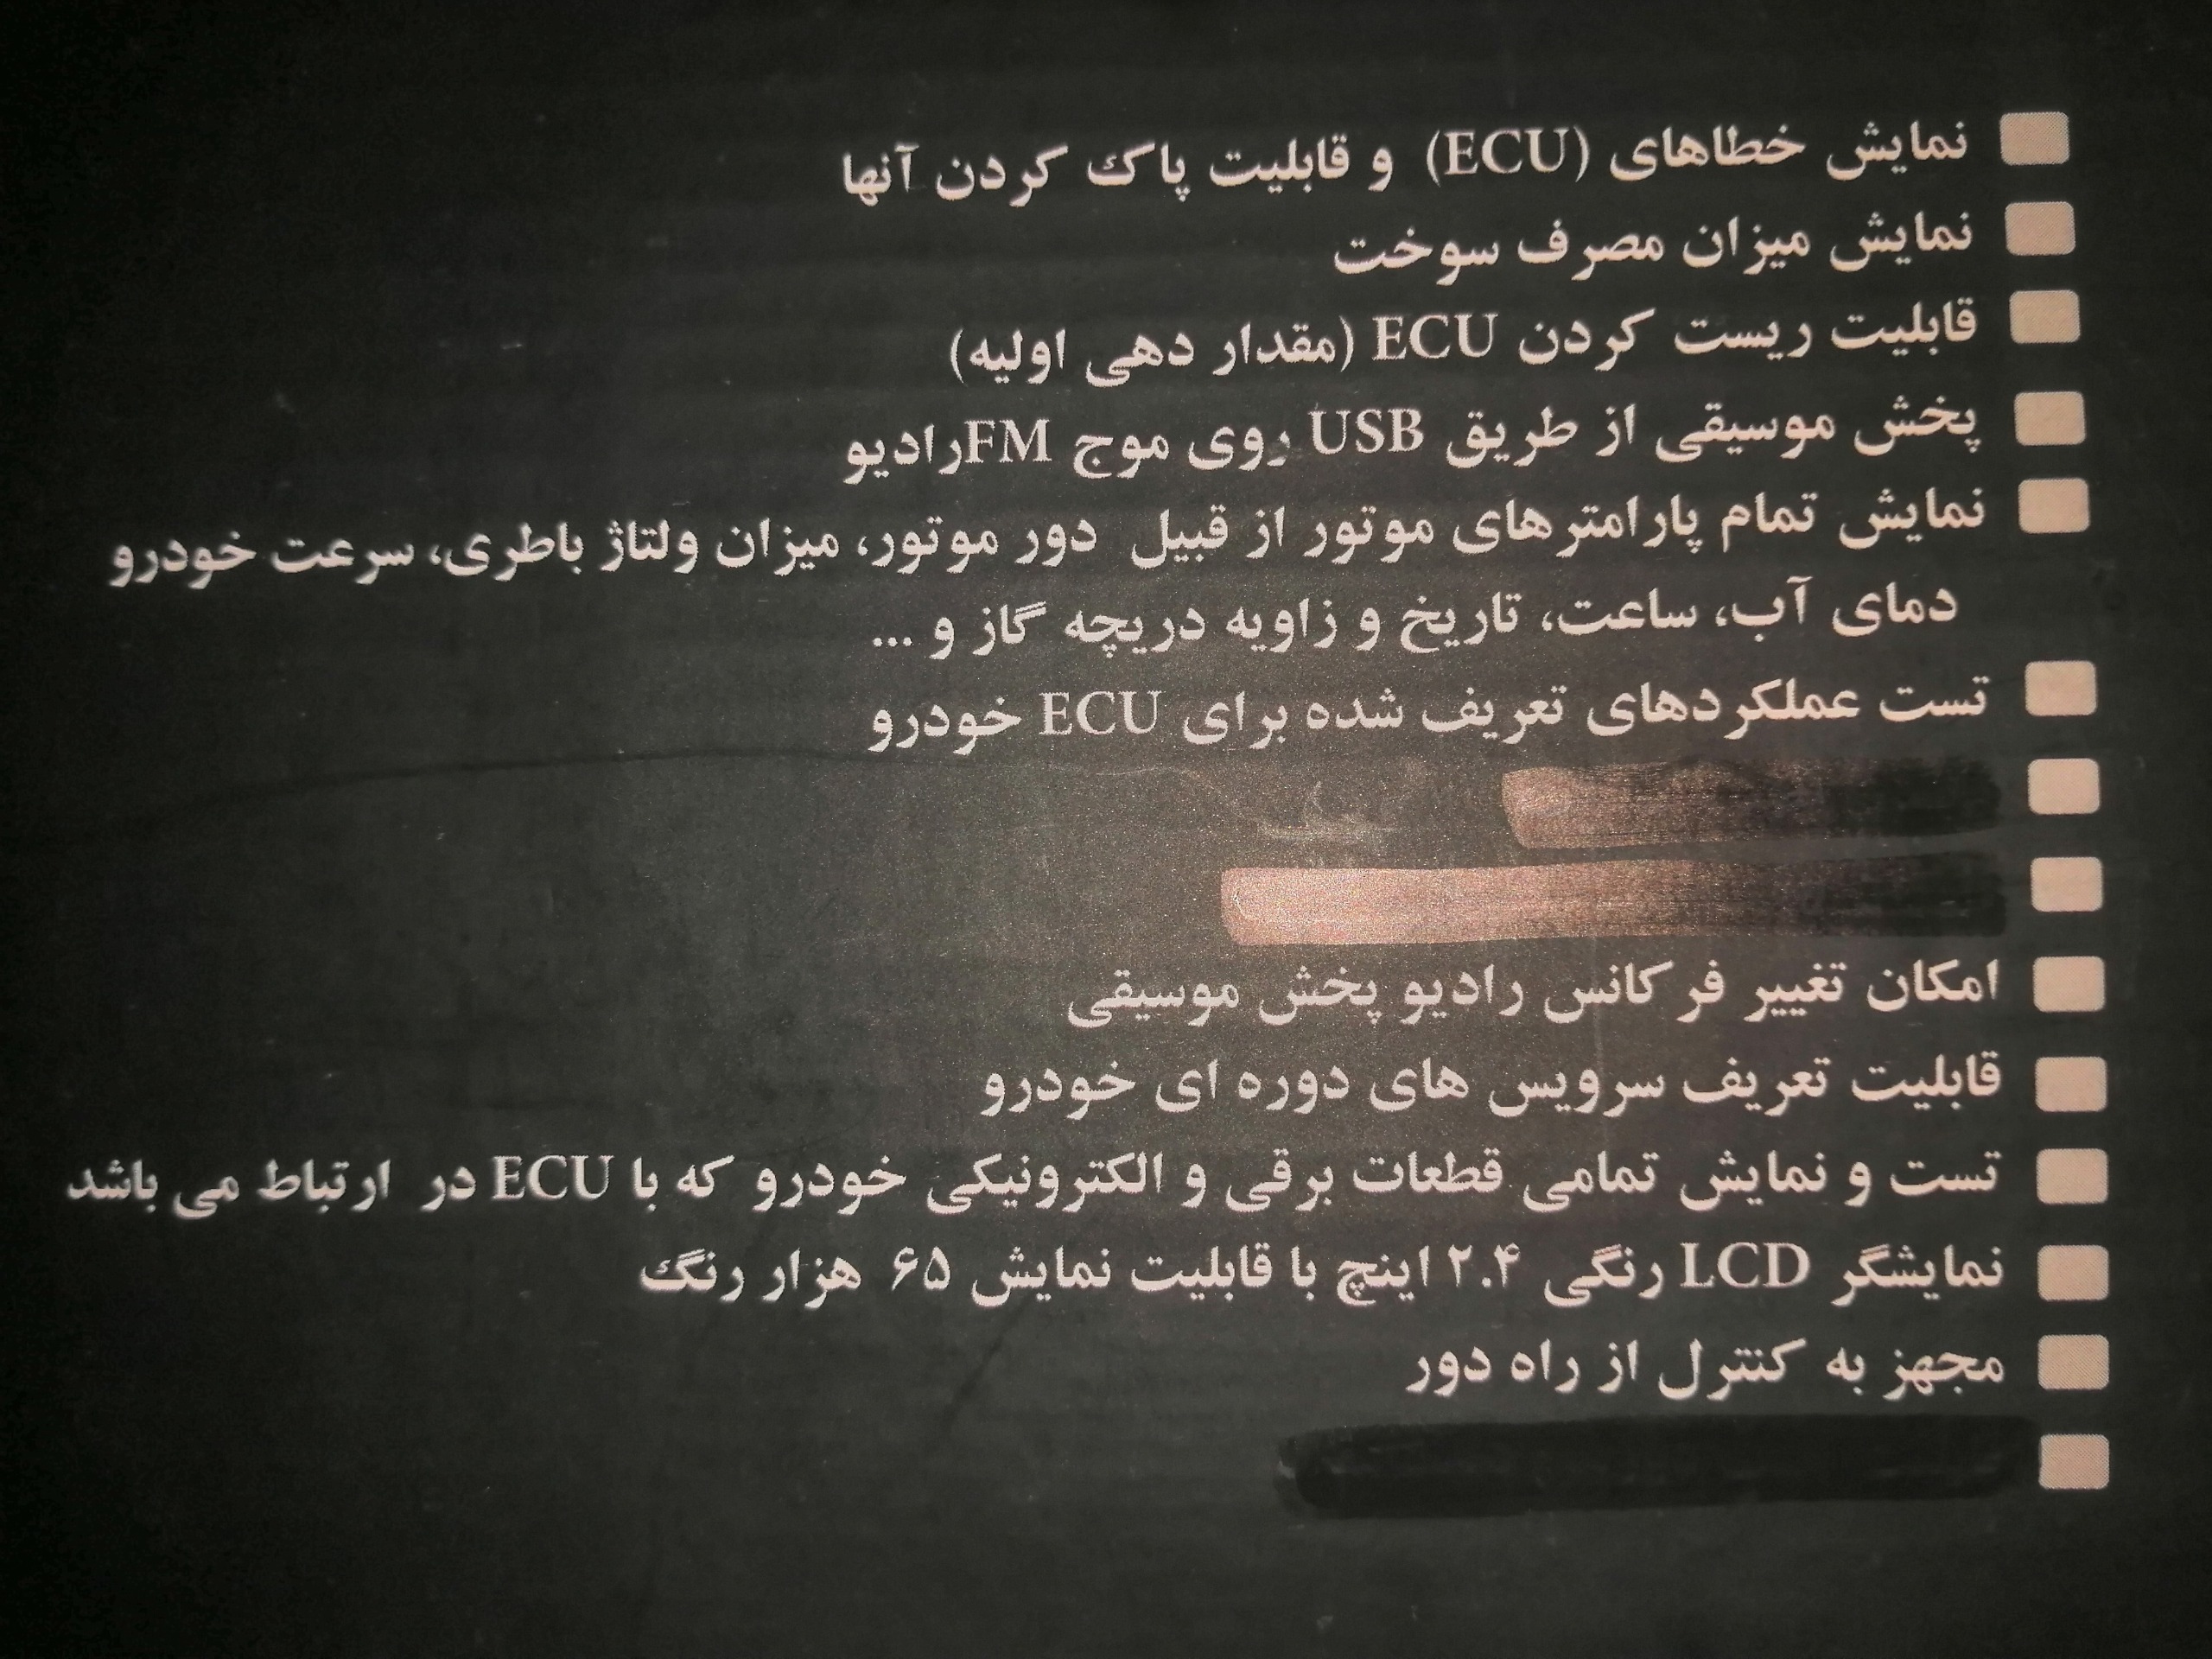 نمایش خطاهای (ECU) و قابلیت پاک کردن آنها
نمایش میزان مصرف سوخت
قابلیت ریست کردن ECU (مقدار دهی اولیه)
پخش موسیقی از طریق USB روی موج FMرادیو
نمایش تمام پارامترهای موتور از قبیل دور موتور، میزان ولتاژ باطری، سرعت خودرو
دمای آب، ساعت، تاریخ و زاویه دریچه گاز و ...
تست عملکردهای تعریف شده برای ECU خودرو
امکان تغییر فرکانس رادیو پخش موسیقی
قابلیت تعریف سرویس های دوره ای خودرو
تست و نمایش تمامی قطعات برقی و الکترونیکی خودرو که با ECU در ارتباط می باشد
نمایشگر LCD رنگی ۲.۴ اینچ با قابلیت نمایش ۶۵ هزار رنگ
مجهز به کنترل از راه دور